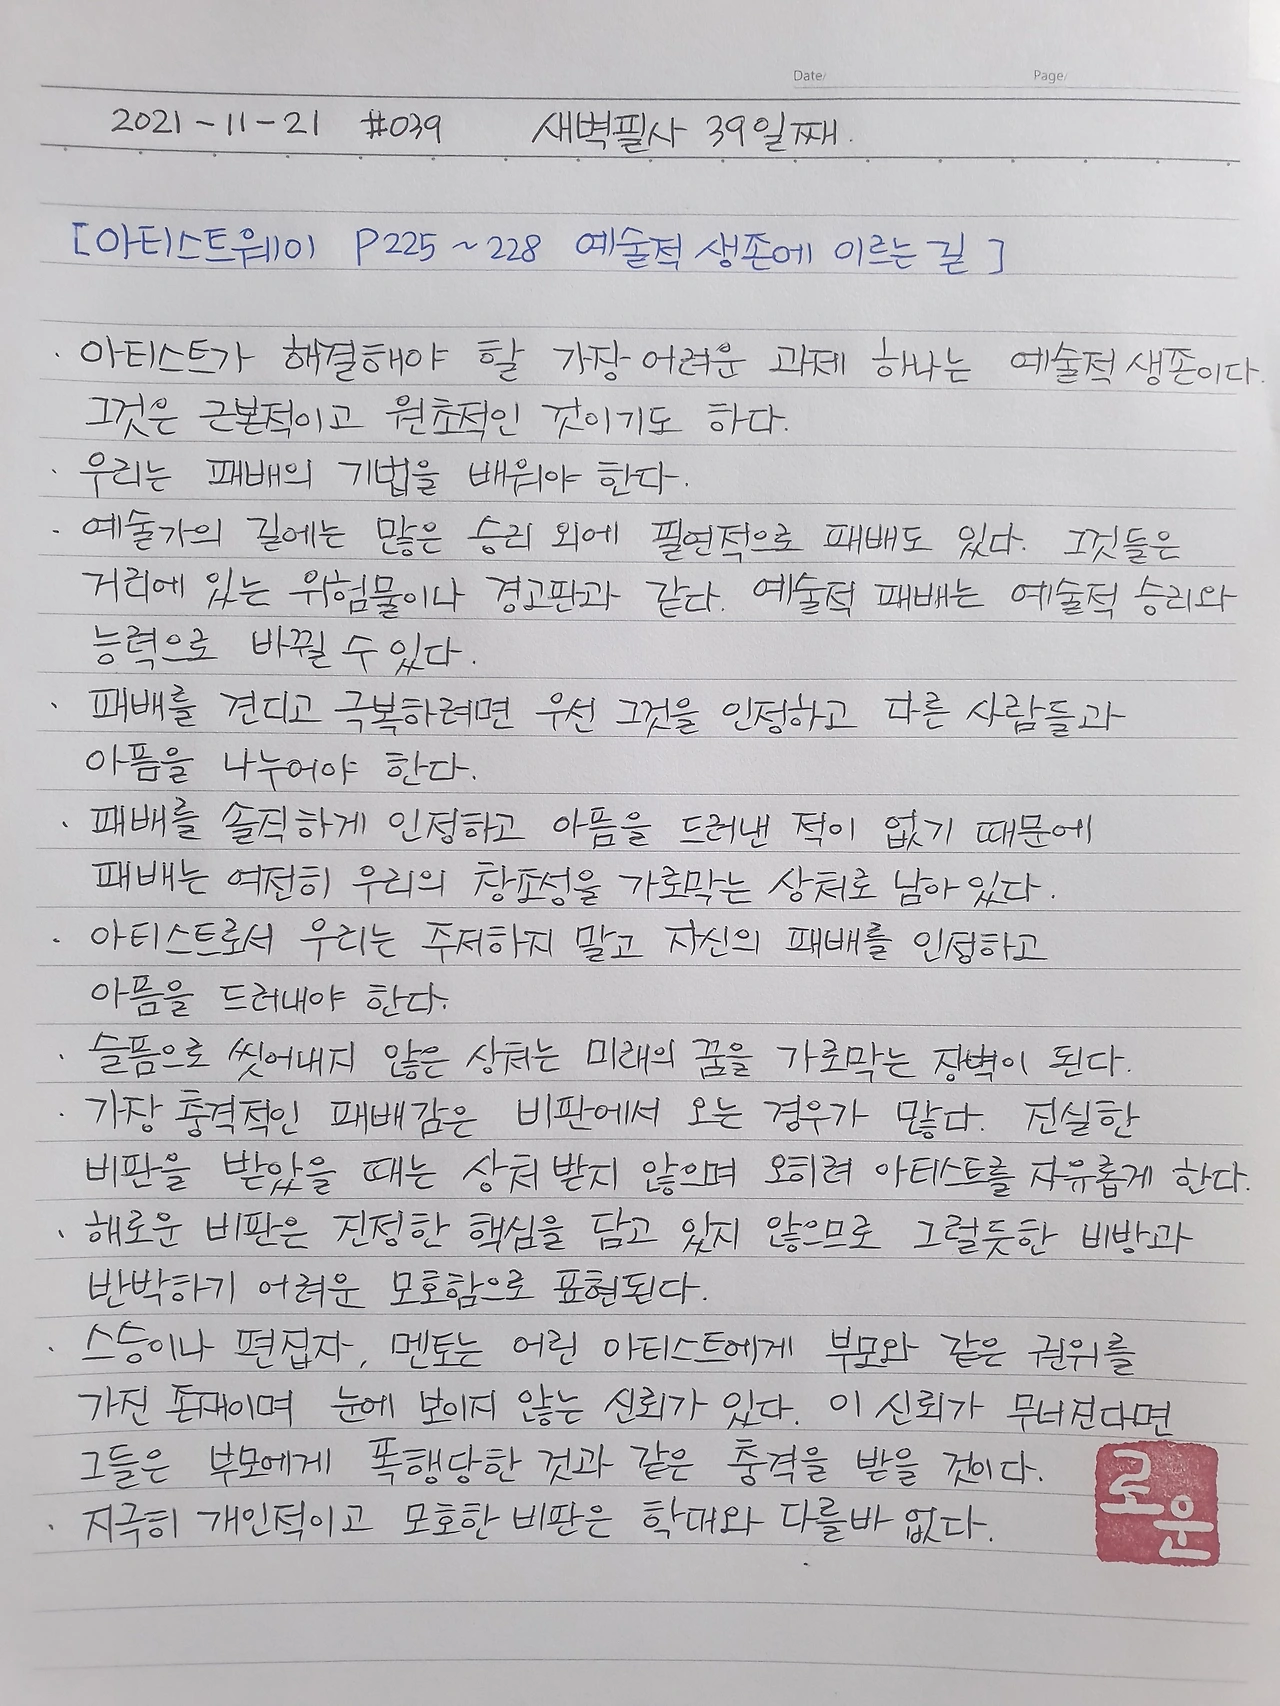 Date/ Page/
2021-11-21 #039 새벽필사 39일째.
[아티스트웨이 P225~228 예술적 생존에 이르는 길]
· 아티스트가 해결해야 할 가장 어려운 과제 하나는 예술적 생존이다.
그것은 근본적이고 원초적인 것이기도 하다.
· 우리는 패배의 기법을 배워야 한다.
· 예술가의 길에는 많은 승리 외에 필연적으로 패배도 있다. 그것들은
거리에 있는 위험물이나 경고판과 같다. 예술적 패배는 예술적 승리와
능력으로 바뀔 수 있다.
· 패배를 견디고 극복하려면 우선 그것을 인정하고 다른 사람들과
아픔을 나누어야 한다.
· 패배를 솔직하게 인정하고 아픔을 드러낸 적이 없기 때문에
패배는 여전히 우리의 창조성을 가로막는 상처로 남아 있다.
· 아티스트로서 우리는 주저하지 말고 자신의 패배를 인정하고
아픔을 드러내야 한다.
· 슬픔으로 씻어내지 않은 상처는 미래의 꿈을 가로막는 장벽이 된다.
· 가장 충격적인 패배감은 비판에서 오는 경우가 많다. 진실한
비판을 받았을 때는 상처 받지 않으며 오히려 아티스트를 자유롭게 한다.
· 해로운 비판은 진정한 핵심을 담고 있지 않으므로 그럴듯한 비방과
반박하기 어려운 모호함으로 표현된다.
· 스승이나 편집자, 멘토는 어린 아티스트에게 부모와 같은 권위를
가진 존재이며 눈에 보이지 않는 신뢰가 있다. 이 신뢰가 무너진다면
그들은 부모에게 폭행당한 것과 같은 충격을 받을 것이다.
· 지극히 개인적이고 모호한 비판은 학대와 다를바 없다.
로운